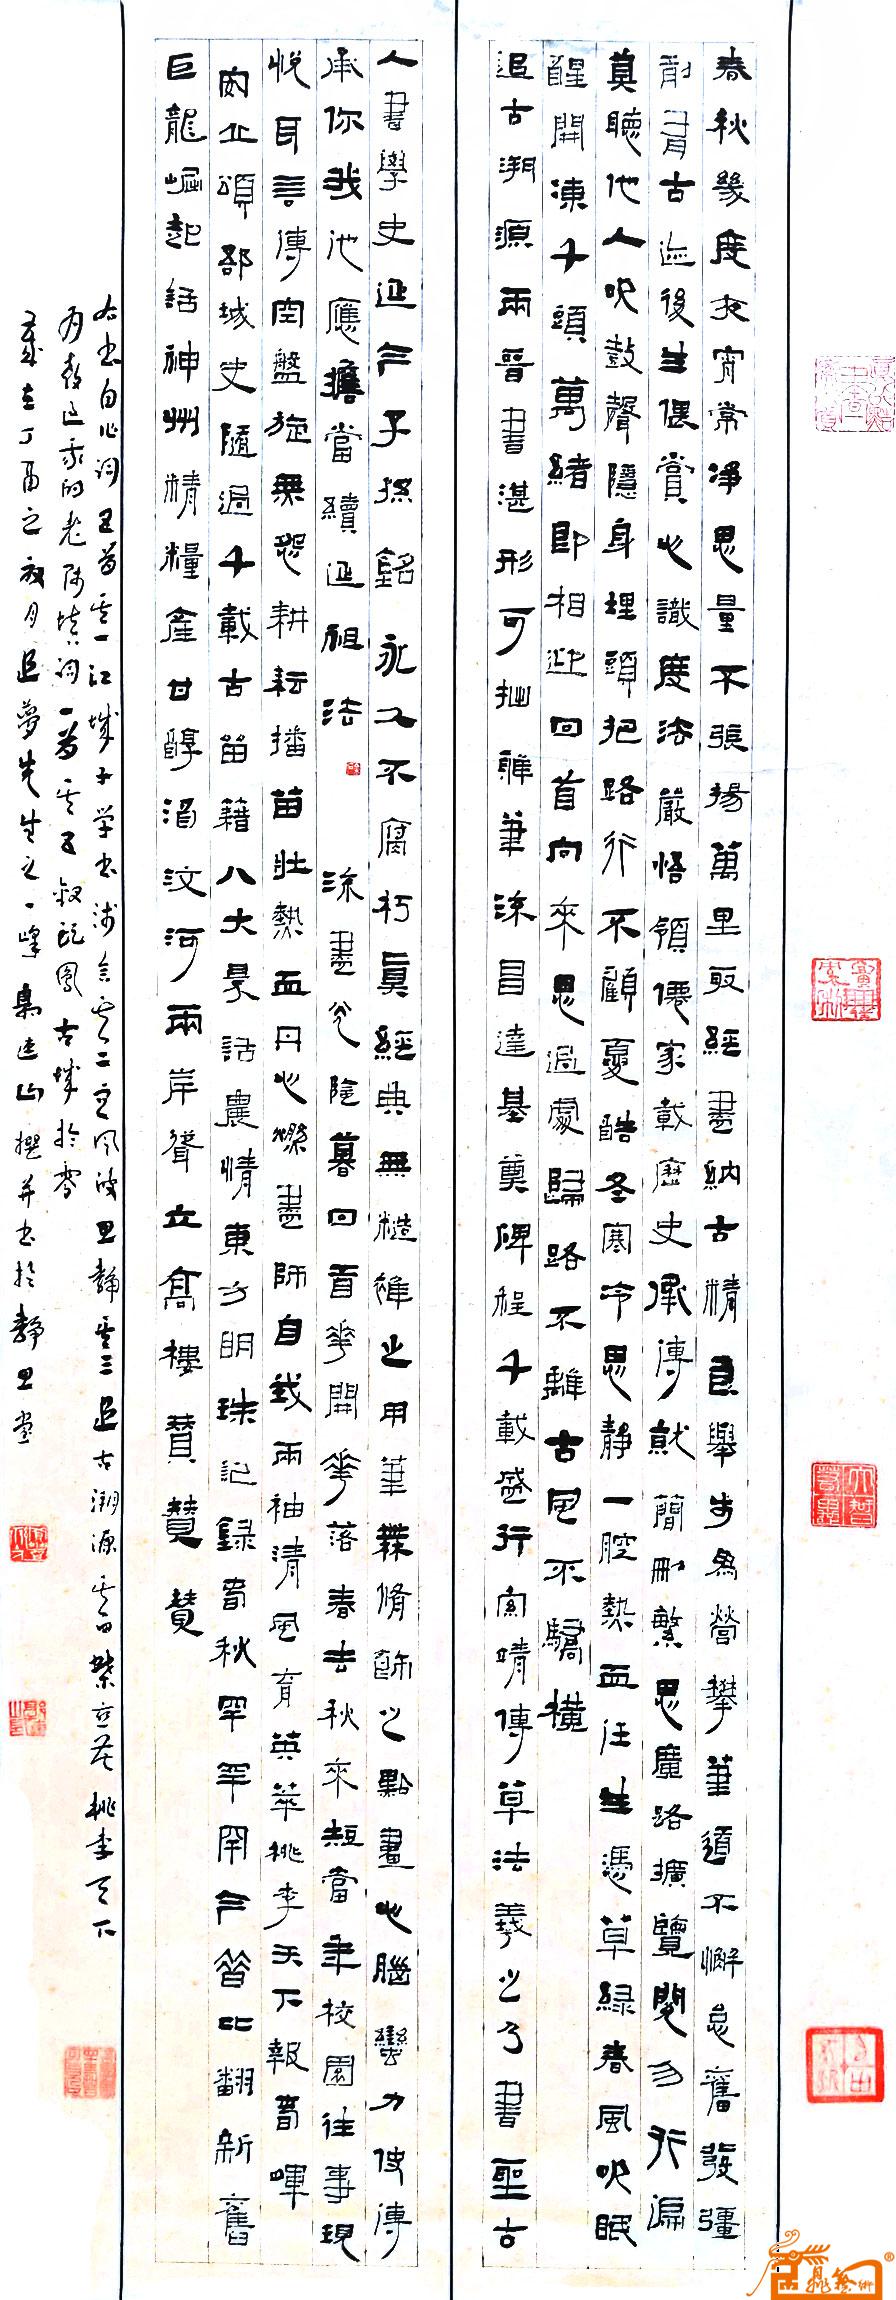 春秋幾度夜宵常淨思量不張揚萬里取經盡納古精良舉步為營攀筆道不懈怠奮發彊
前看古迹後生偎賞心識度法嚴悟領儒家載歷史承傳就簡刪繁思廣路擴覽閱勿行漏
莫聽他人吹鼓聲隱身埋頭把路行不顧夏酷冬寒冷思靜一腔熱血任生憑草綠春風吹眠
醒開凍千頭萬緒即相迎回首向來思過處歸路不離古風不驕橫
追古溯源兩晉書湛形可拙雅筆流昌達基奠碑程千載盛行索靖傳草法羲之乃書聖古
人書學史延今子孫銘永久不腐朽真經典無糙雜之用筆舞脩飾之點畫心腦蠻力使傳
承你我他應擔當續延祖法 流盡光陰暮回首華開華落春去秋來短當年校園往事現
悅耳言傳空盤旋無怨耕耘播苗壯熱血丹心燃盡師自我兩袖清風育英華桃李天下報春暉
安丘頌郚城史隨過千載古苗籍八大景話農情東方明珠記錄春秋罕罕罔今昔比翻新舊
巨龍崛起話神州精糧產甘醇酒汶河兩岸聳立高樓贊贊贊
右書自作詞五首其一江城子學書淺言其二定風波思靜其三追古溯源其四 桃李天下
為教過我的老師填詞一首其五敘說鳳古城於當
歲在丁酉之 月追夢先生之一峰 建山撰并書於靜思堂